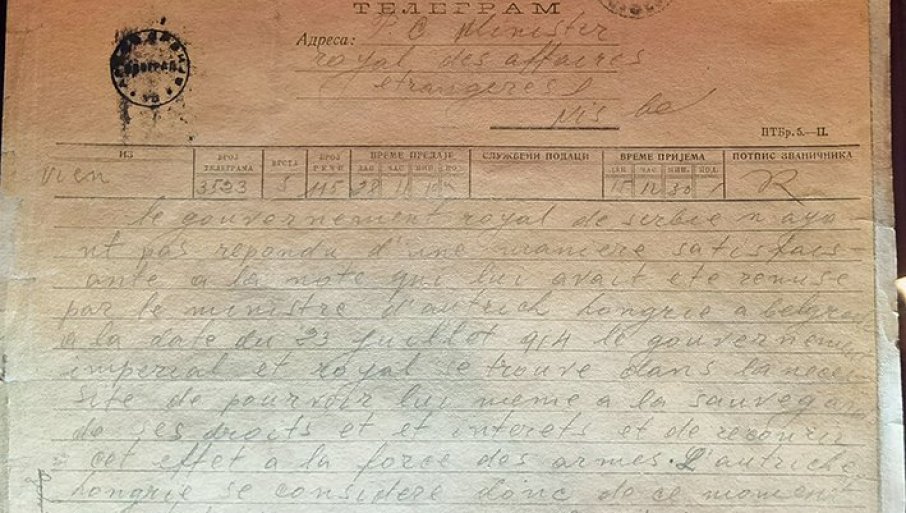 ТЕЛЕГРАМ
Адреса:
Minister
royal des affaires
etrangeres
Nis
ПТБр. 5.—II.
ИЗ БРОЈ ТЕЛЕГРАМА ВРСТА БРОЈ РЕЧИ ВРЕМЕ ПРЕДАЈЕ СЛУЖБЕНИ ПОДАЦИ ВРЕМЕ ПРИЈЕМА ПОТПИС ЗВАНИЧНИКА
ДАН ЧАС МИН. ПО. ДАН ЧАС МИН. ПОД.
Vien 3523 S 115 28 11 10 12 30 R
le gouvernement royal de serbie n ayo
nt pas repondu d'une maniere satisfais-
ante a la note qui lui avait ete remise
par le ministre d'autrich hongrie a belgrade
a la date du 23 juillot 914 le gouvernement
imperial et royal se trouve dans la neces
site de pourvoir lui meme a la sauvega
de ses droits et et interets et de recourir
cet effet a la force des armes. L'autriche
hongrie se considere donc de ce moment